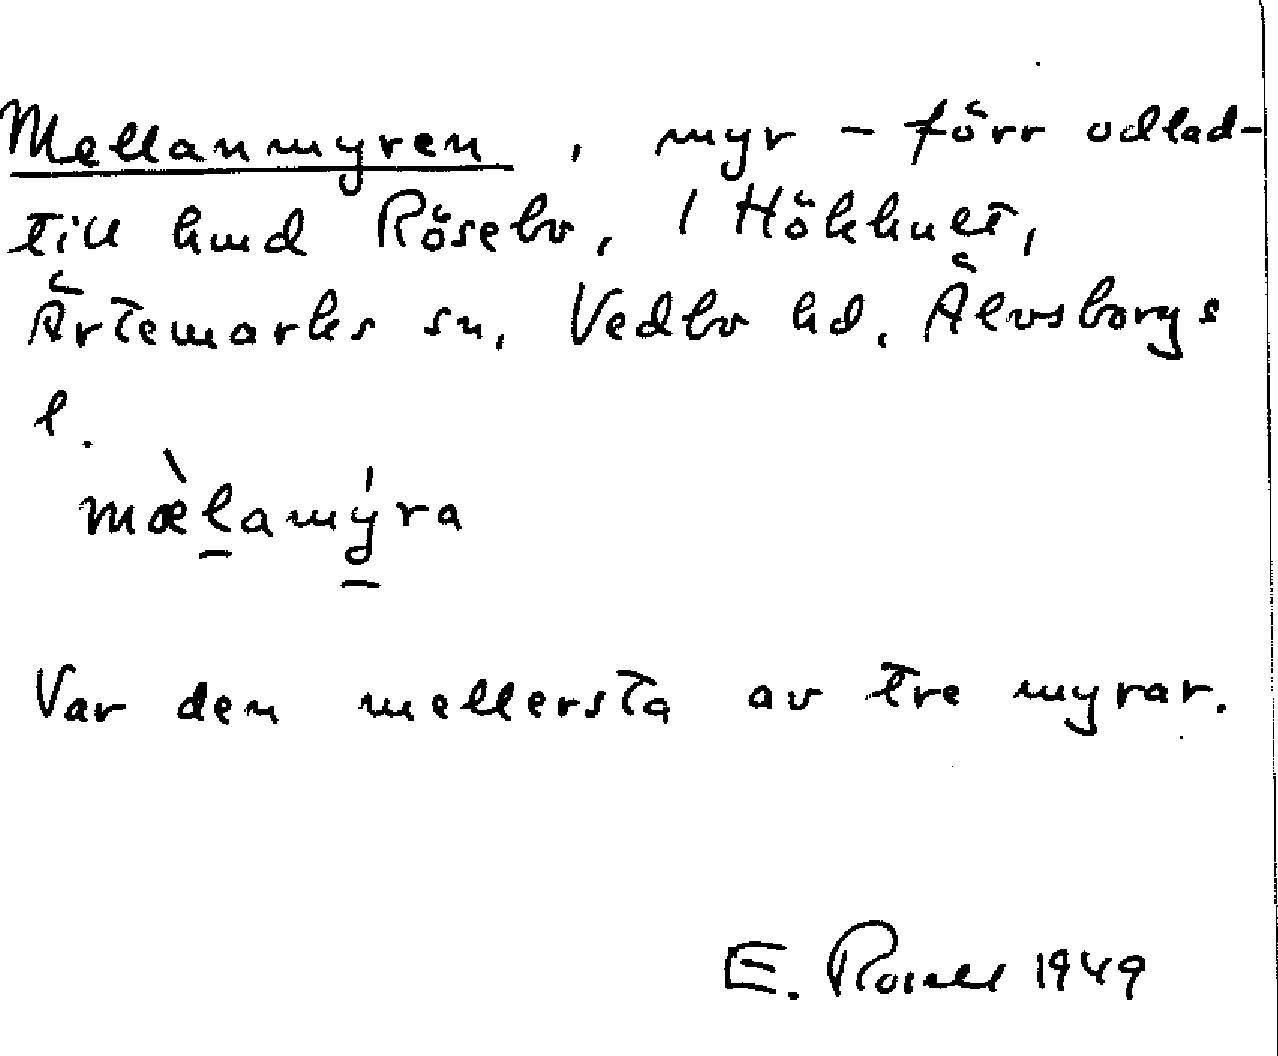 Mellanmyren, myr - förr odlad-
till hmd Rösebo, i Hökhult,
Ärtemarks sn, Vedbo hd. Älvsborgs
l.
mæ̀lamýra
Var den mellersta av tre myrar.
E. 1949